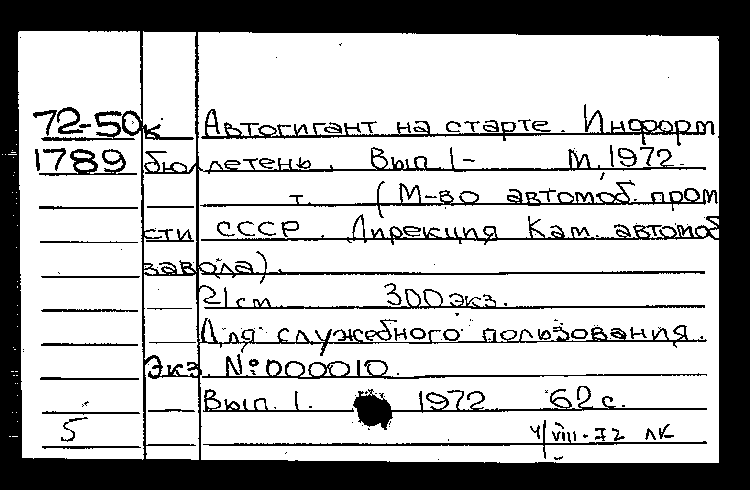 72-50к Автогигант на старте. Информ
1789 бюллетень. Вып 1- М, 1972.
т. (М-во автомоб. пром
сти СССР. Дирекция Кам. автомоб
завода).
21 см 300 экз.
Для служебного пользования.
Экз. №000010.
Вып. 1. 1972 62 с.
5 4/VIII-72 ЛК